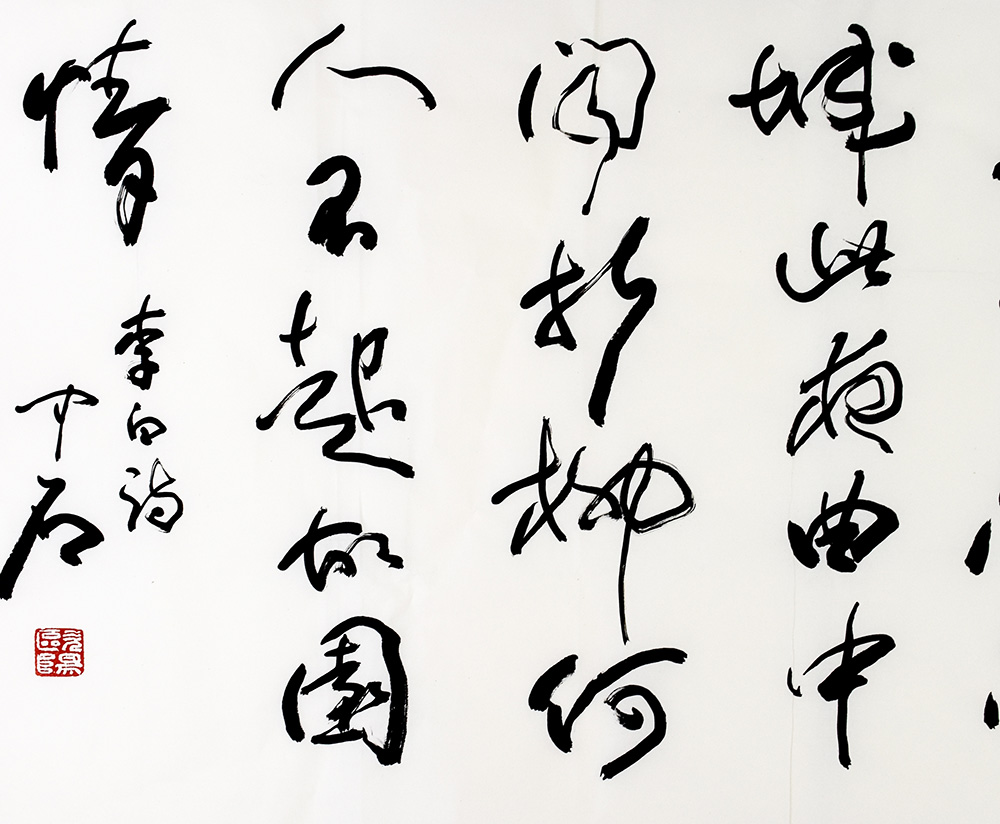 城此夜曲中
闻折柳何
人不起故園
情
李白诗
中石